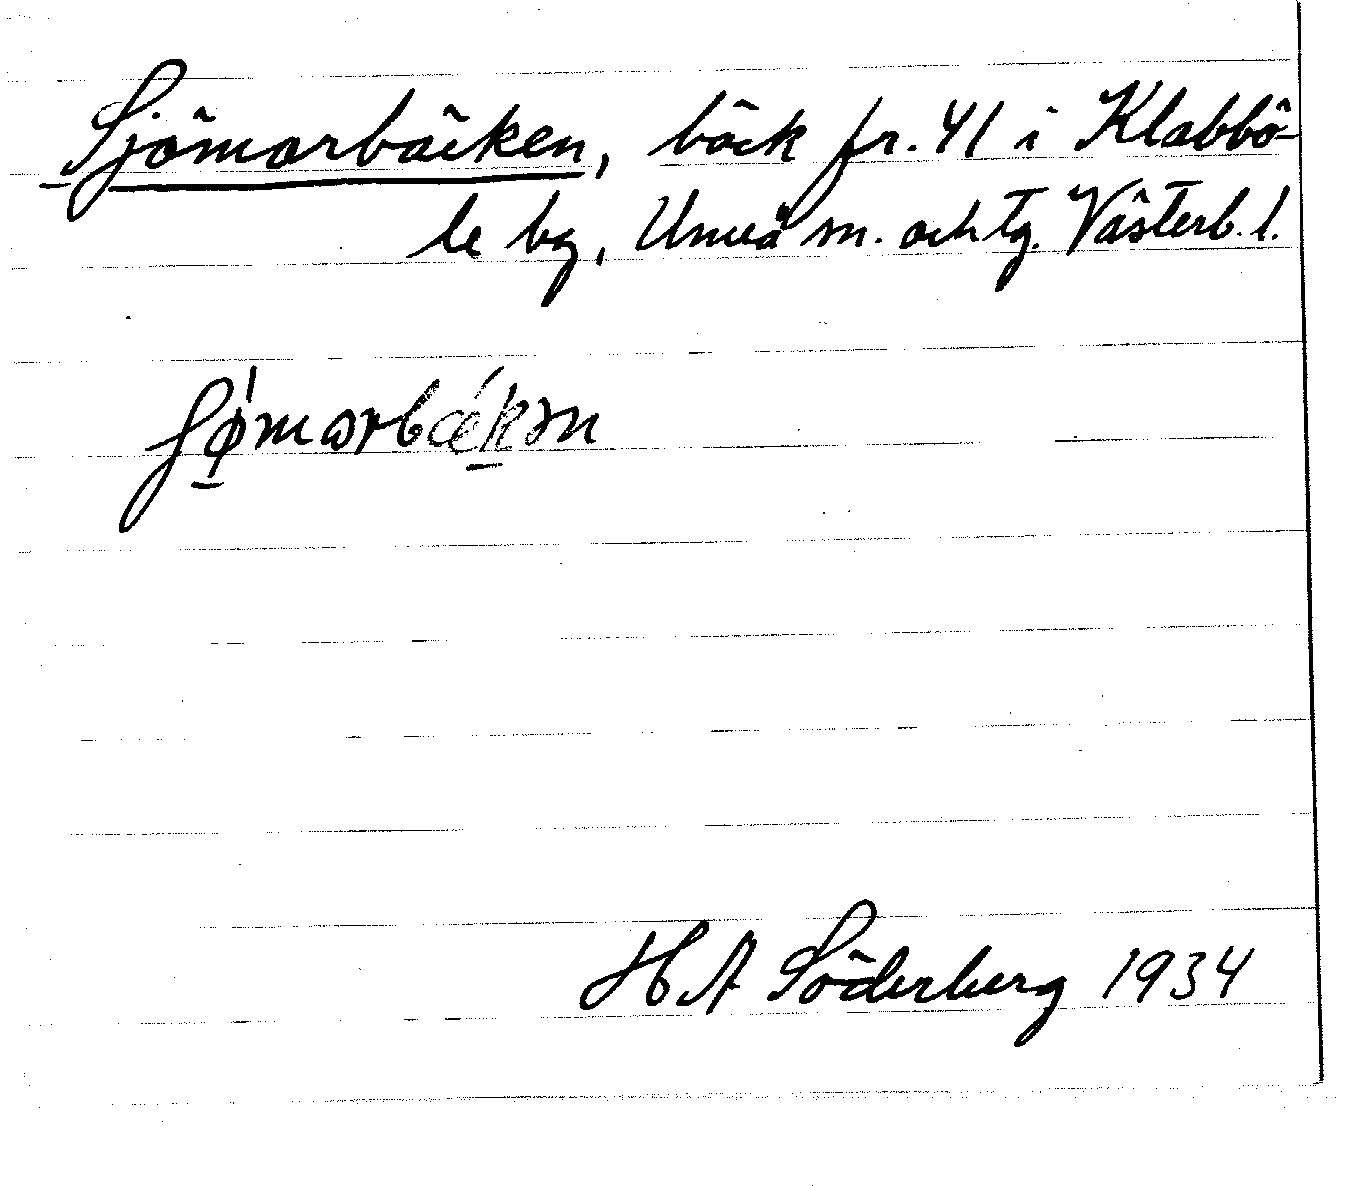 Sjömarbäcken, bäck fr. 41 i Klabbö-
le by, Umeå sn. och tg. Västerb. l.
H A Söderberg 1934